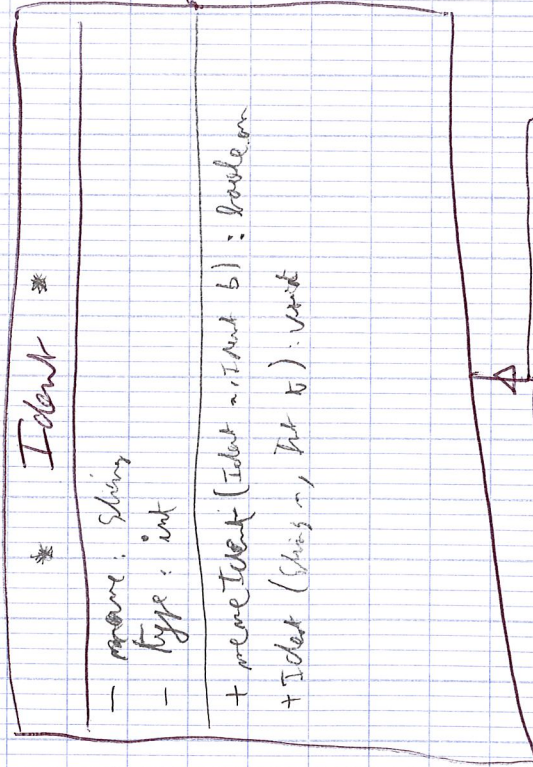 * Ident *
- name : String
- type : int
+ memeIdent (Ident a, Ident b) : boolean
+ Ident (String n, Int t) : void